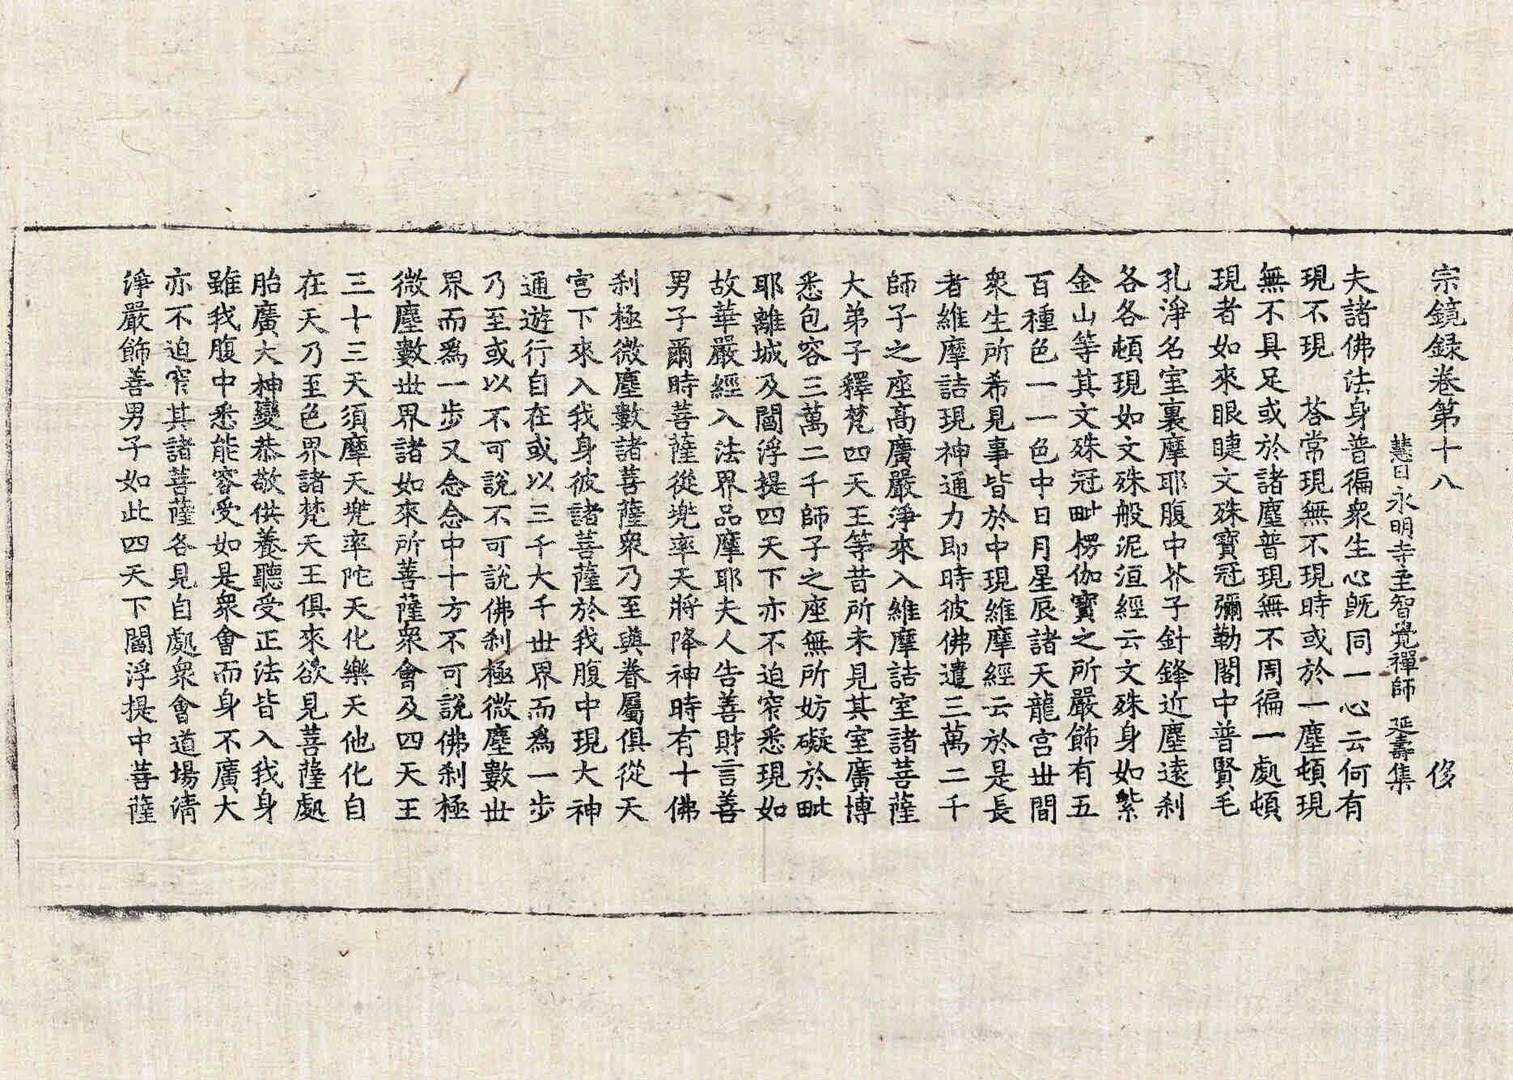 宗鏡録卷第十八　侈
慧日永明寺主智覺禪師　延壽集
夫諸佛法身普徧衆生心旣同一心云何有
現不現　荅常現無不現時或於一塵頓現
無不具足或於諸塵普現無不周徧一處頓
現者如來眼睫文殊寶冠彌勒閣中普賢毛
孔淨名室裏摩耶腹中芥子針鋒近塵遠刹
各各頓現如文殊般泥洹經云文殊身如紫
金山等其文殊冠毗楞伽寶之所嚴飾有五
百種色一一色中日月星辰諸天龍宮丗間
衆生所希見事皆於中現維摩經云於是長
者維摩詰現神通力即時彼佛遣三萬二千
師子之座高廣嚴淨來入維摩詰室諸菩薩
大弟子釋梵四天王等昔所未見其室廣博
悉包容三萬二千師子之座無所妨礙於毗
耶離城及閻浮提四天下亦不迫窄悉現如
故華嚴經入法界品摩耶夫人告善財言善
男子爾時菩薩從兠率天將降神時有十佛
刹極微塵數諸菩薩衆乃至與眷屬俱從天
宮下來入我身彼諸菩薩於我腹中現大神
通遊行自在或以三千大千丗界而爲一步
乃至或以不可說不可說佛刹極微塵數丗
界而爲一步又念念中十方不可說佛刹極
微塵數丗界諸如來所菩薩衆會及四天王
三十三天須摩天兠率陀天化樂天他化自
在天乃至色界諸梵天王俱來欲見菩薩處
胎廣大神變恭敬供養聽受正法皆入我身
雖我腹中悉能容受如是衆會而身不廣大
亦不迫窄其諸菩薩各見自處衆會道場淸
淨嚴飾善男子如此四天下閻浮提中菩薩